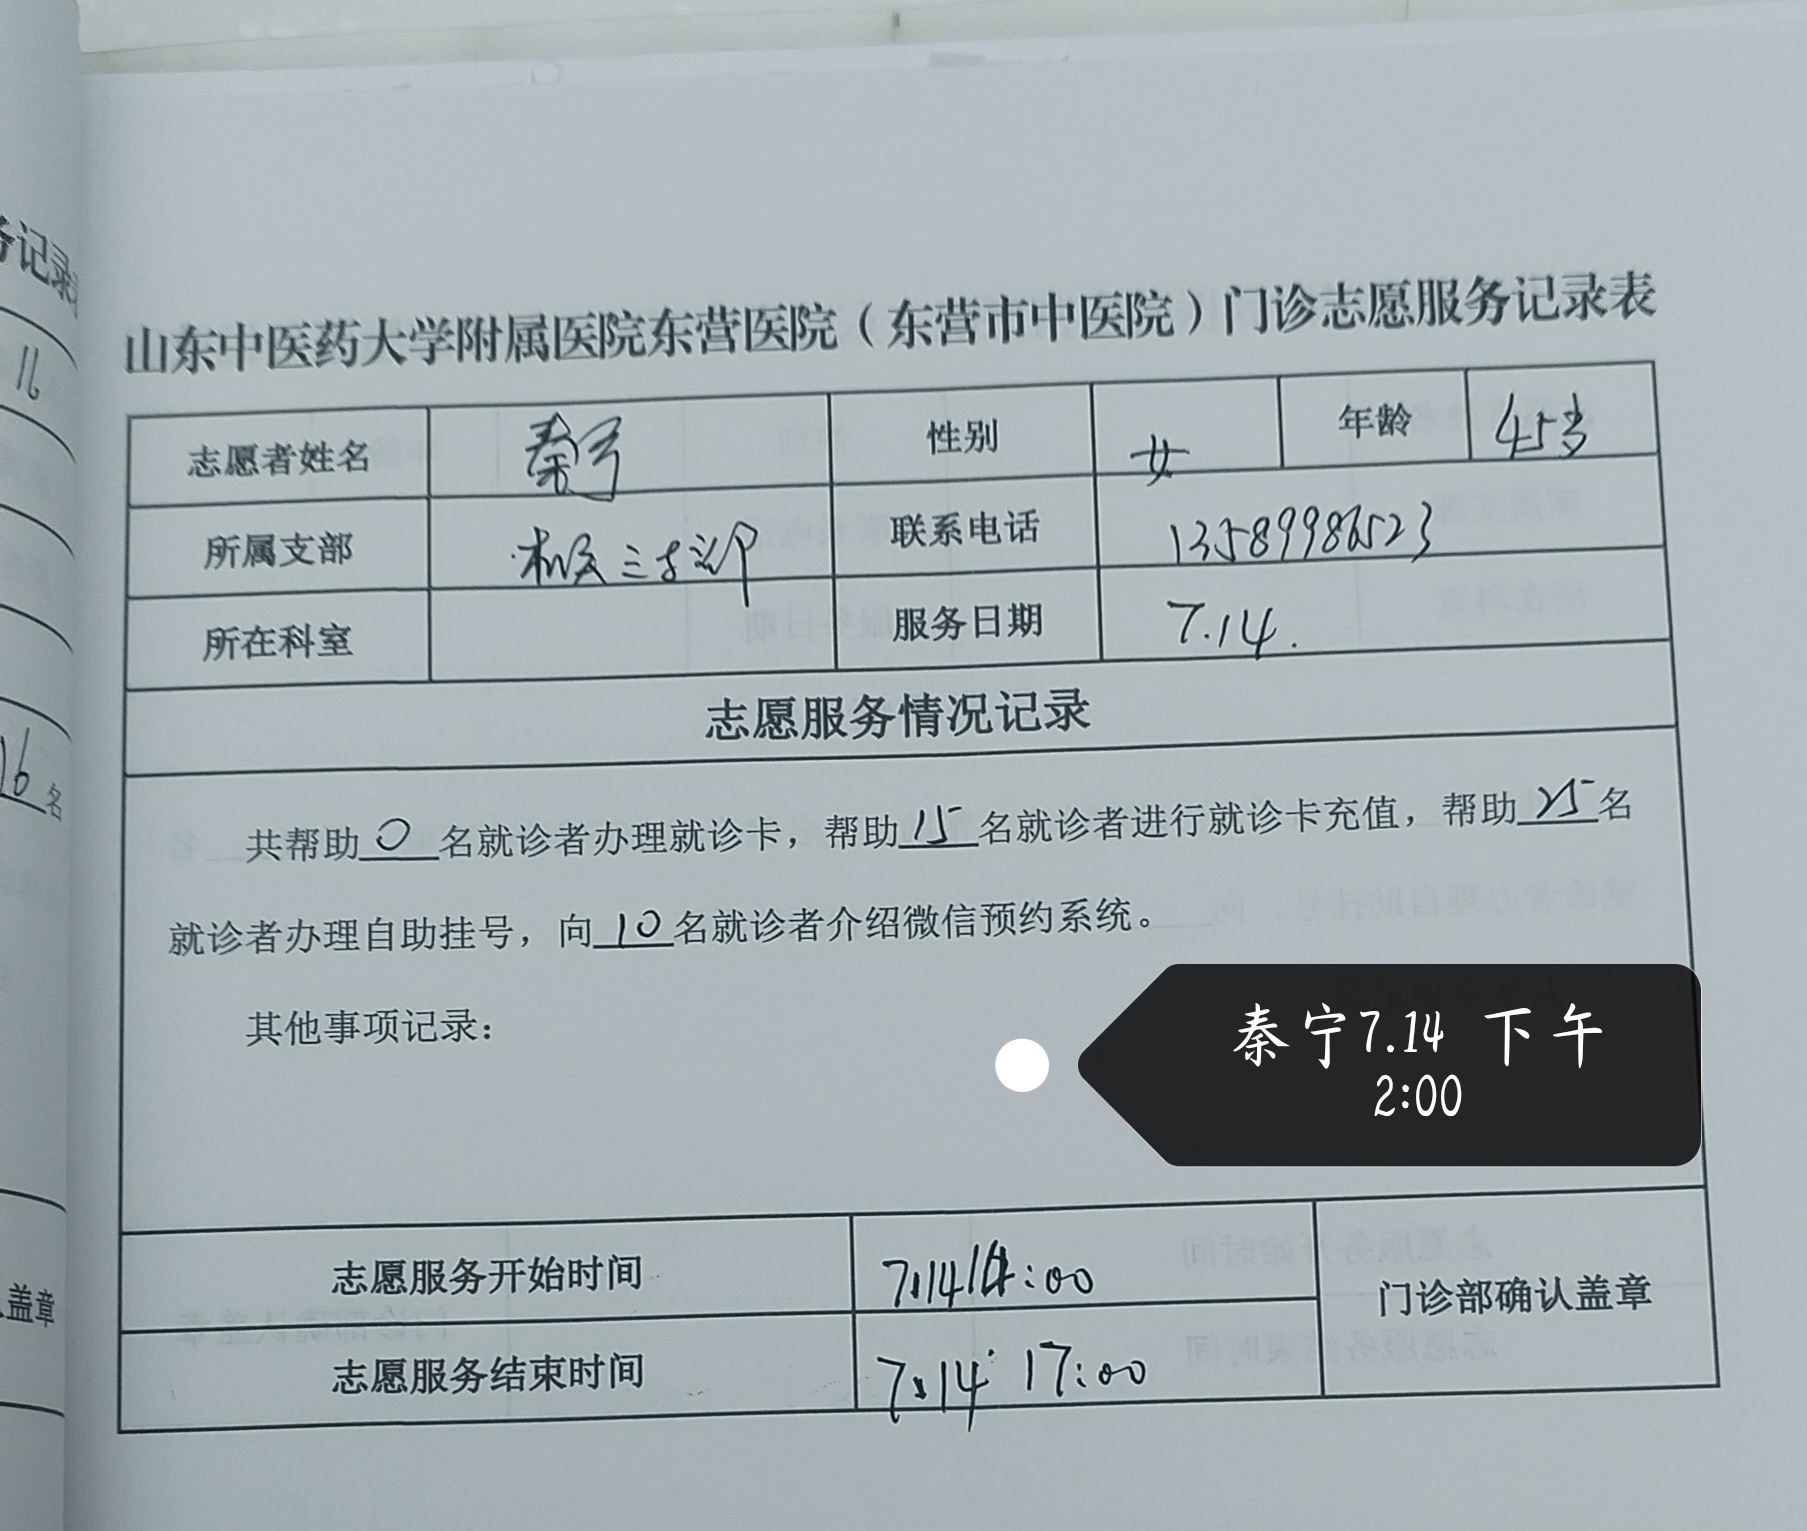 务记录
山东中医药大学附属医院东营医院（东营市中医院）门诊志愿服务记录表
志愿者姓名 秦宁 性别 女 年龄 45岁
所属支部 机关三支部 联系电话 13589986523
所在科室 服务日期 7.14.
志愿服务情况记录
16名
共帮助0名就诊者办理就诊卡，帮助15名就诊者进行就诊卡充值，帮助25名
就诊者办理自助挂号，向10名就诊者介绍微信预约系统。
其他事项记录：
秦宁7.14 下午
2:00
志愿服务开始时间 7.14 14:00 门诊部确认盖章
盖章
志愿服务结束时间 7.14 17:00